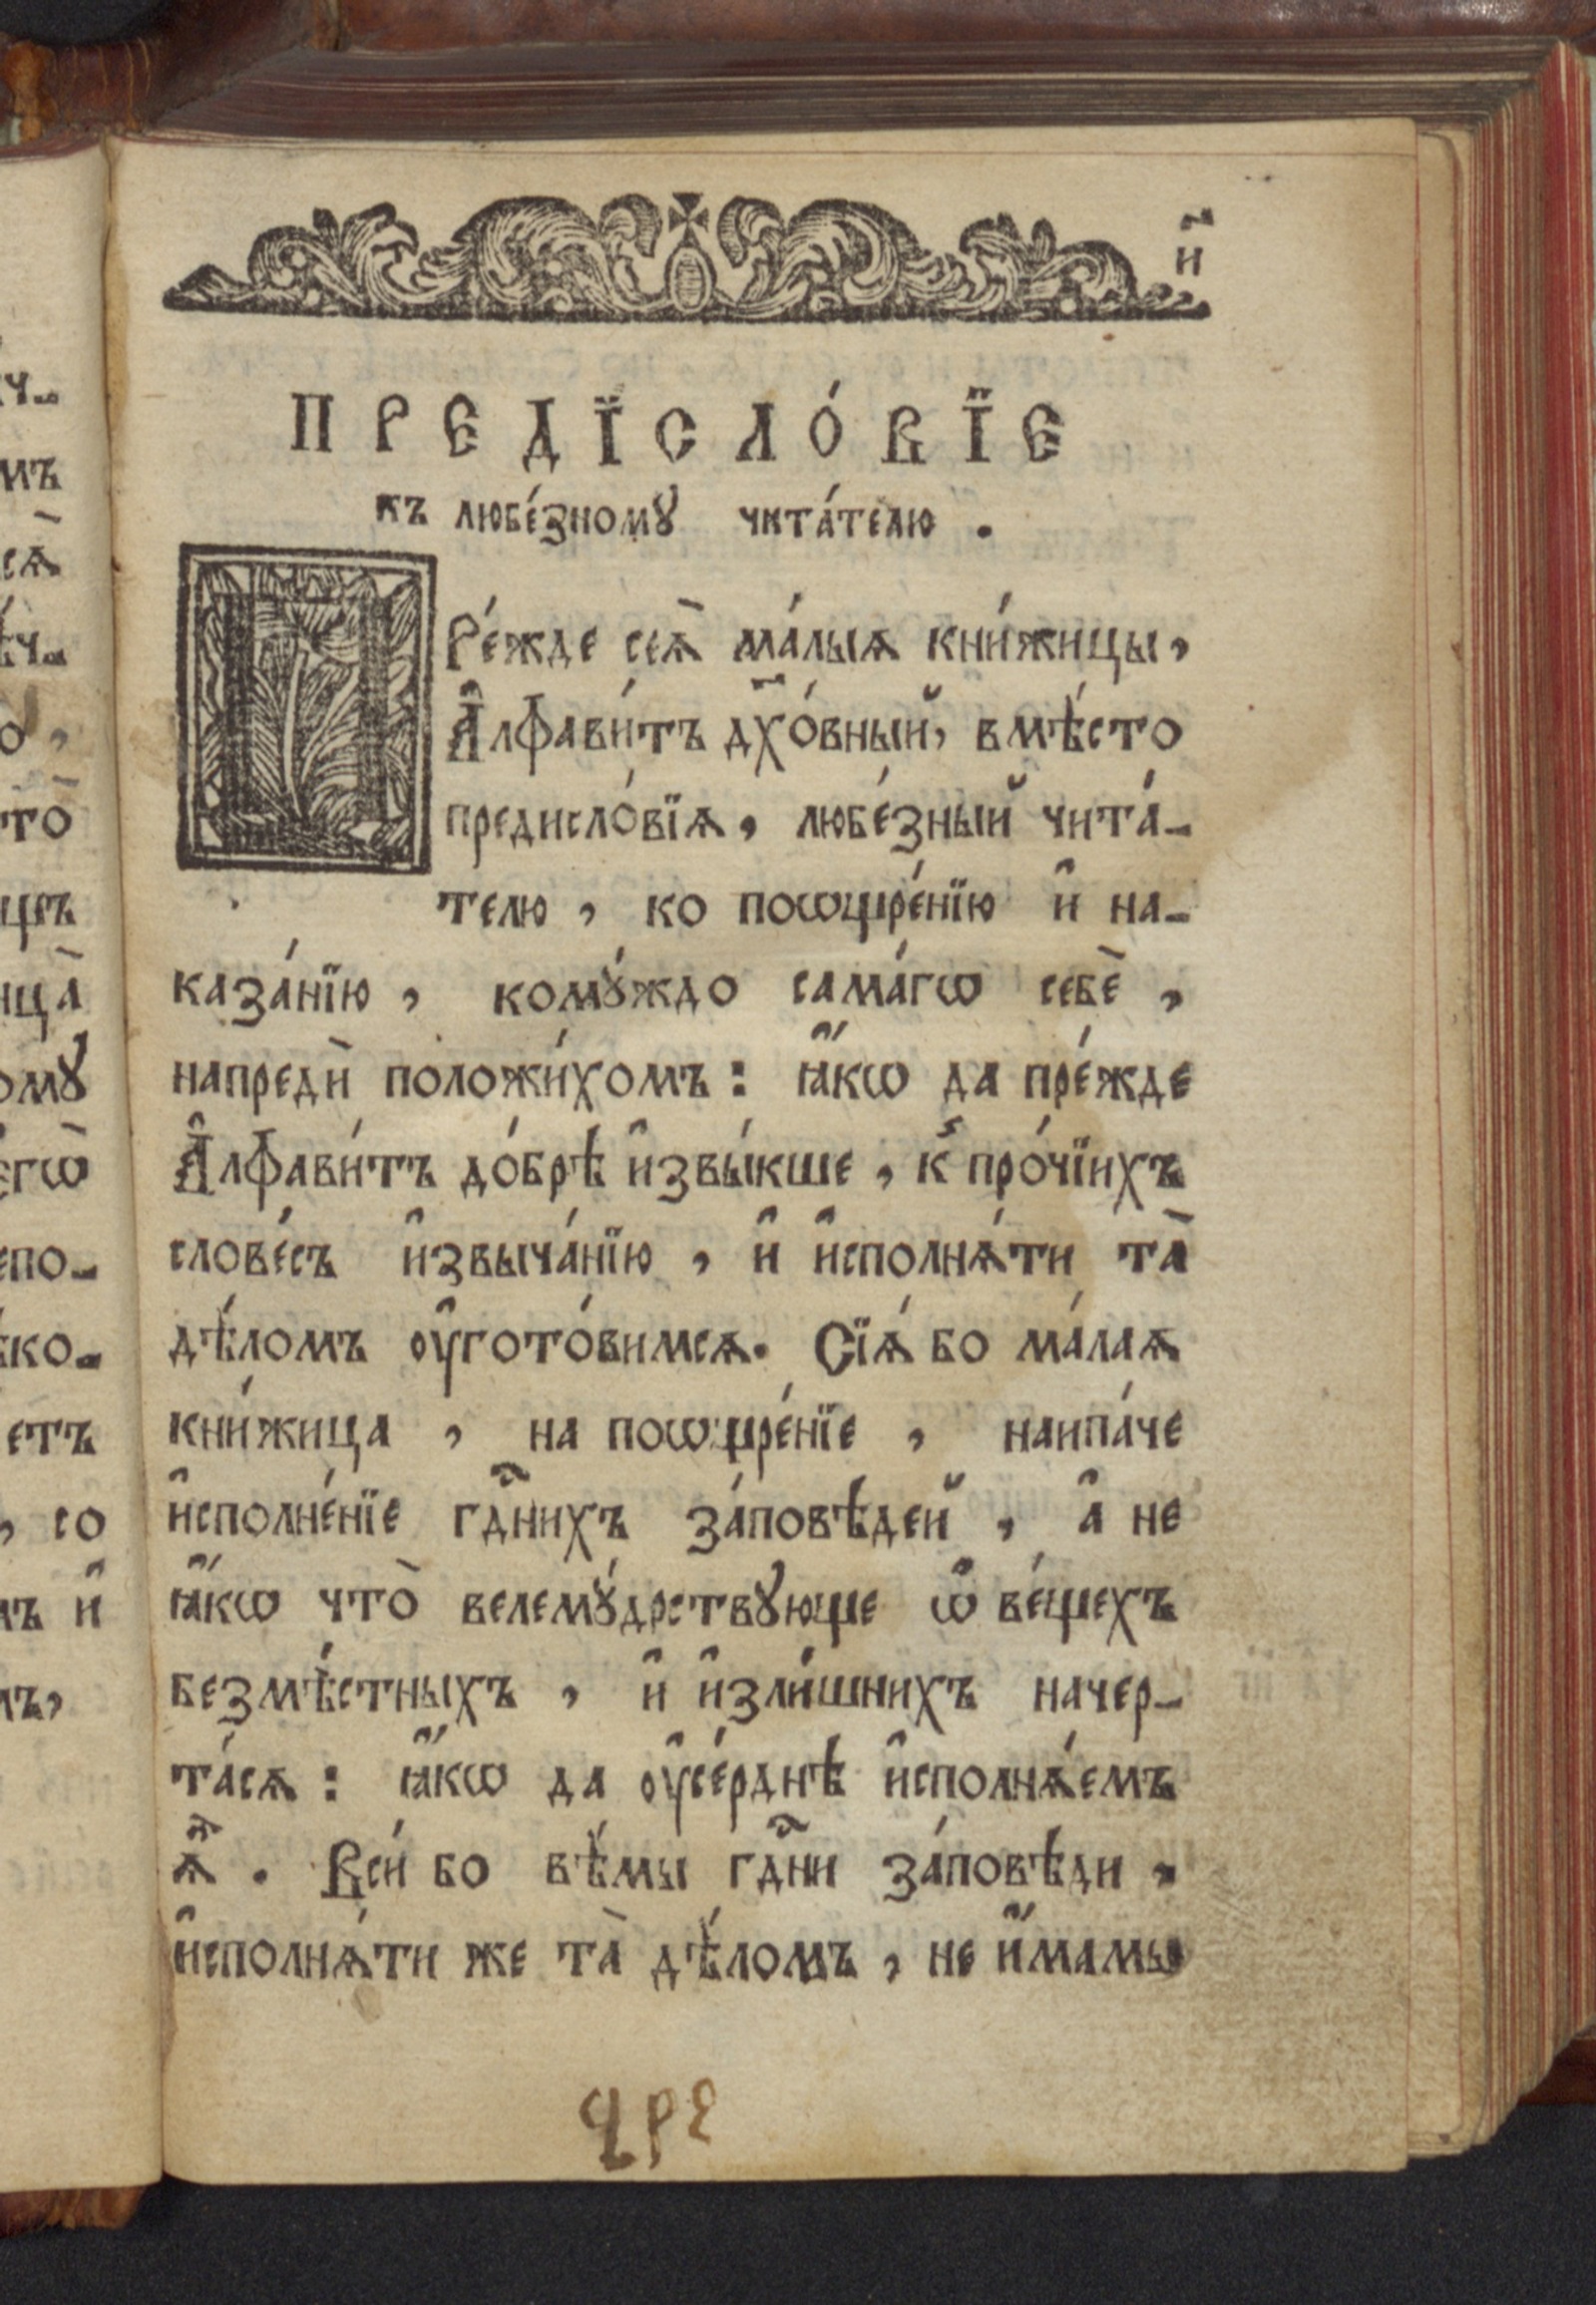 и҃
ПРЕДЇСЛО́ВЇЕ
къ любе́зномꙋ чита́телю .
Пре́жде сея̀ ма́лыѧ кни́жицы,
А҆лфави́тъ дх҃о́вный, вмѣ́сто
предисло́вїѧ, любе́зный чита́-
телю, ко поѡщре́нїю и҆ на-
каза́нїю, комꙋ́ждо сама́гѡ себѐ,
напредѝ положи́хомъ: ꙗ҆́кѡ да пре́жде
А҆лфави́тъ до́брѣ и҆звы́кше, к̾ про́чїихъ
слове́съ и҆звыча́нїю, и҆ и҆сполнѧ́ти та̀
дѣ́ломъ ᲂу҆гото́вимсѧ. Сїѧ́ бо ма́лаѧ
кни́жица, на поѡщре́нїе, наипа́че
и҆сполне́нїе гд҃нихъ за́повѣдей, а҆ не
ꙗ҆́кѡ что̀ велемꙋ́дрствꙋюще ѡ҆ ве́щехъ
безмѣ́стныхъ, и҆ и҆зли́шнихъ начер-
та́сѧ: ꙗ҆́кѡ да ᲂу҆се́рднѣ и҆сполнѧ́емъ
ѧ҆̀. Всѝ бо вѣ́мы гд҃ни за́повѣди,
и҆сполнѧ́ти же та̀ дѣ́ломъ, не и҆́мамы